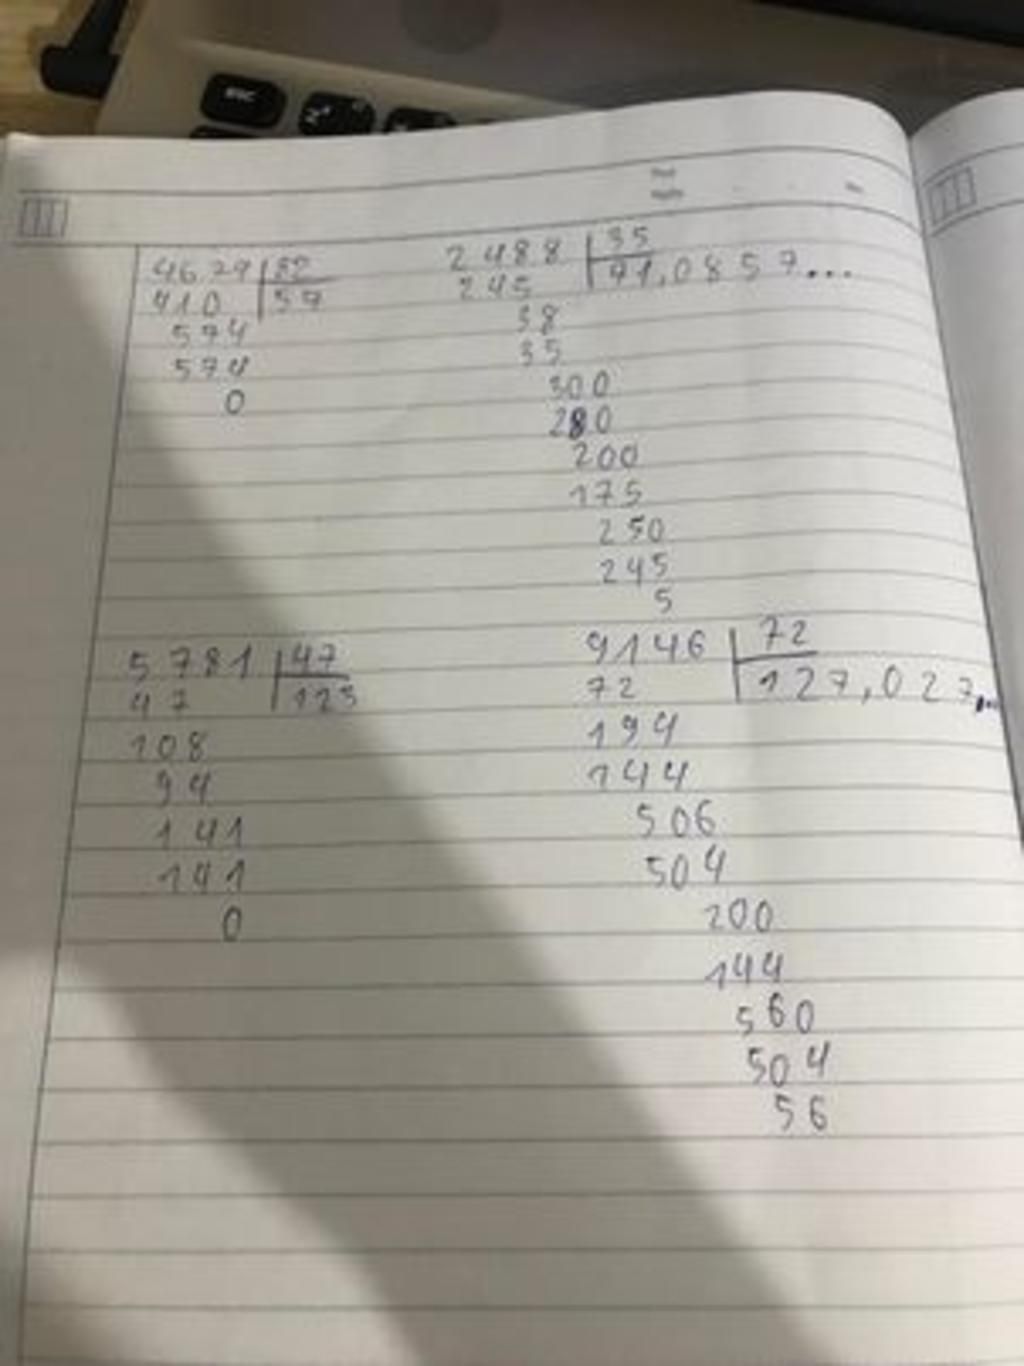 esc
4629 82
410 57
574
574
0
2488 35
245 71,0857...
38
35
300
280
200
175
250
245
5
5781 47
47 123
108
94
141
141
0
9146 72
72 127,027...
194
144
506
504
200
144
560
504
56